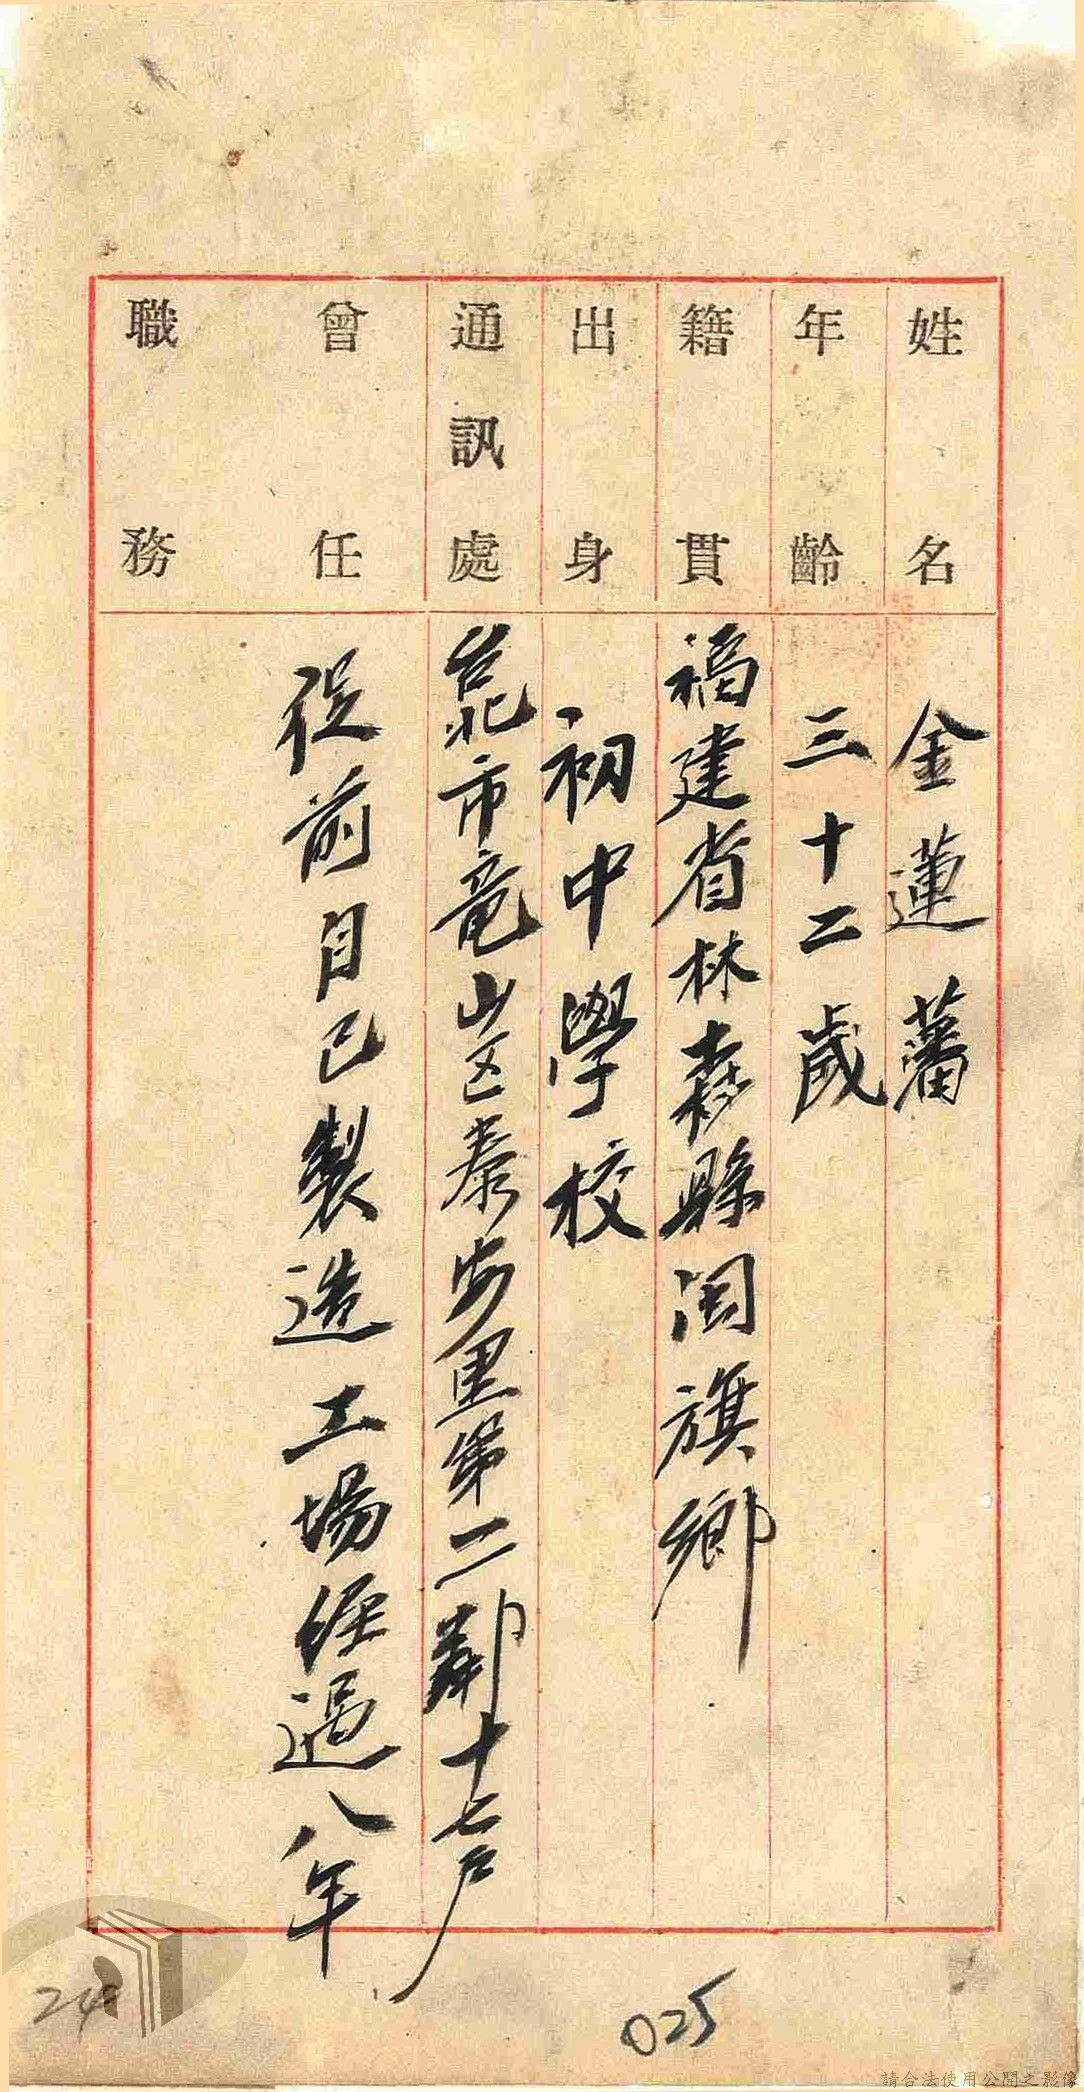 姓名
金蓮藩
年齡
三十二歲
籍貫
福建省林森縣閩旗鄉
出身
初中學校
通訊處
台北市竜山区泰安里第二鄰十七户
曾任
職務
從前自己製造工場經過八年
025
請合法使用公開之影像